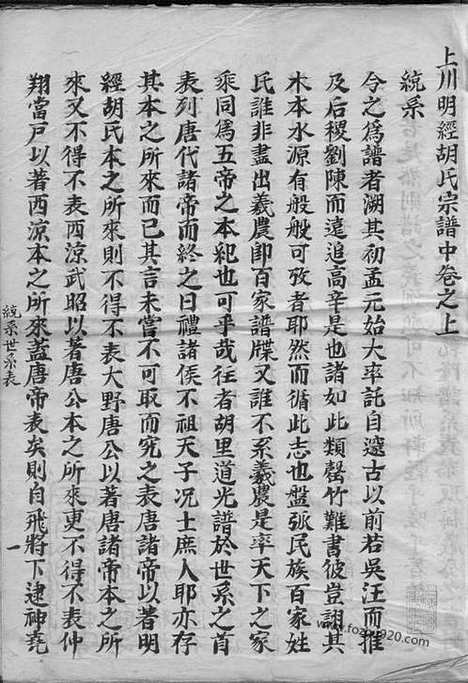 上川明經胡氏宗譜中卷之上
統系
今之為譜者溯其初孟元始大率託自邃古以前若吳汪而推
及后稷劉陳而遠追高辛是也諸如此類罄竹難書彼豈詡其
木本水源有般般可攷者耶然而循此志也盤弧民族百家姓
民誰非盡出羲農即百家譜牒又誰不系羲農是率天下之家
乘同為五帝之本紀也可乎哉往者胡里道光譜於世系之首
表列唐代諸帝而終之曰禮諸侯不祖天子况士庶人耶亦存
其本之所來而已其言未嘗不可取而究之表唐諸帝以著明
經胡氏本之所來則不得不表大野唐公以著唐諸帝本之所
來又不得不表西涼武昭以著唐公本之所來更不得不表仲
翔當戶以著西涼本之所來蓋唐帝表矣則自飛將下逮神堯
統系世系表
一
www.fozu920.com